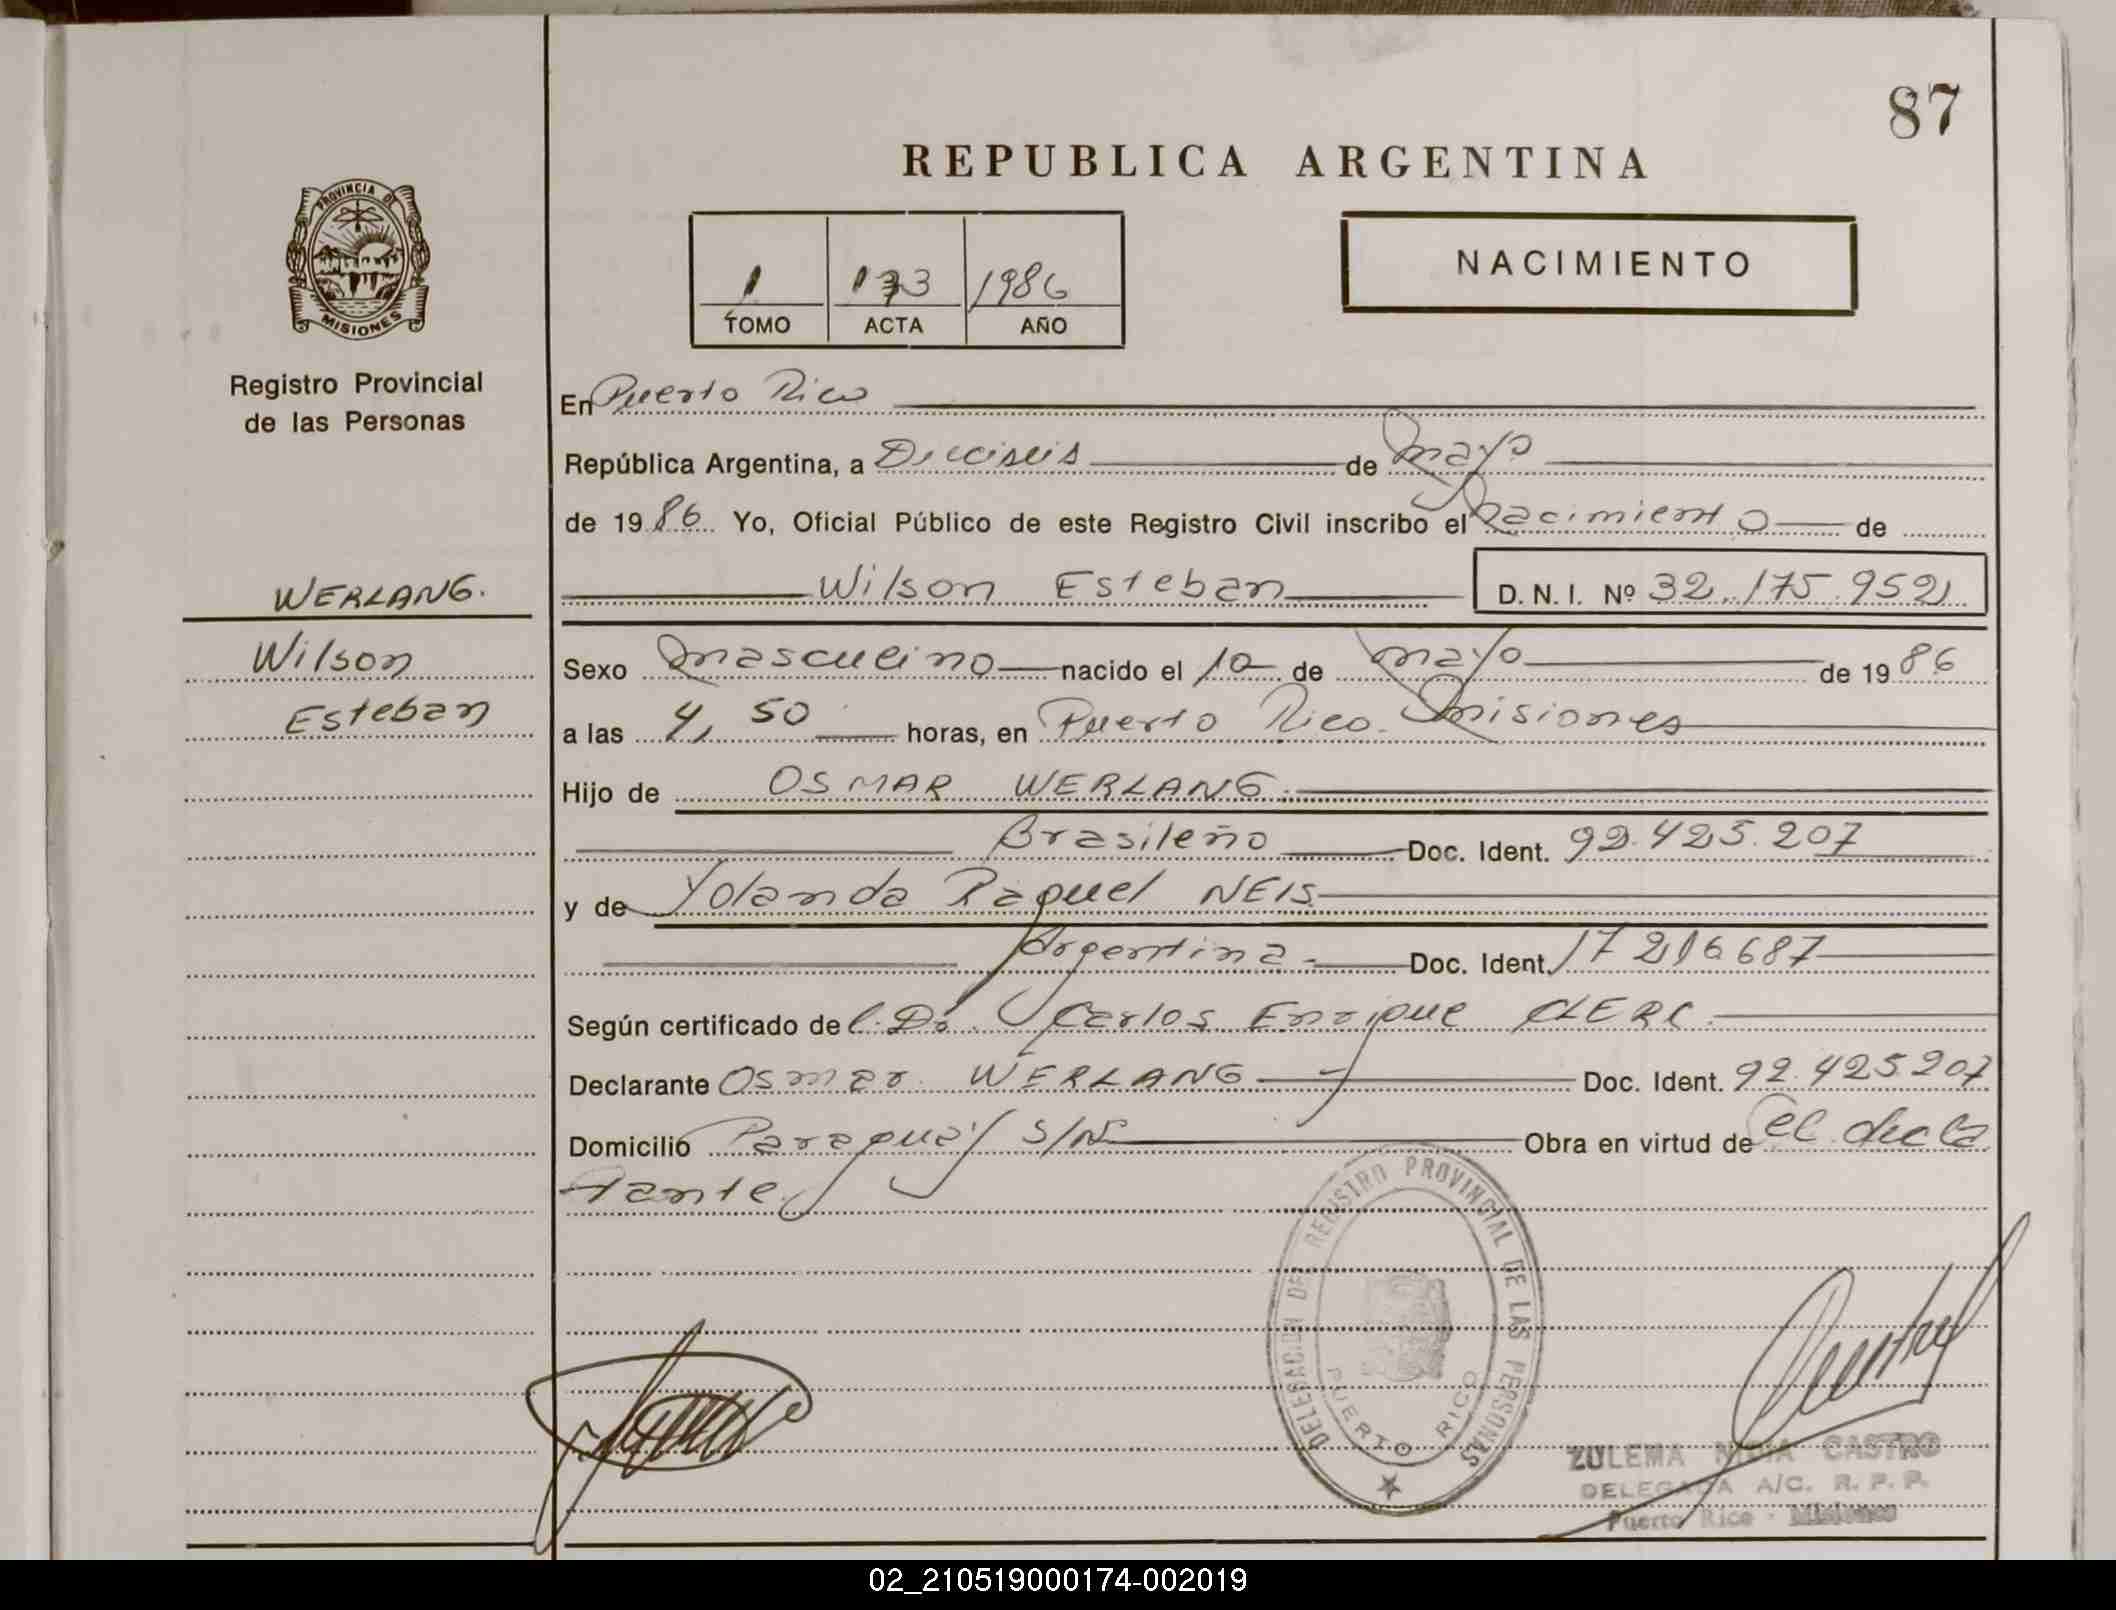 87
REPUBLICA ARGENTINA
PROVINCIA DE
MISIONES
1 1986
TOMO ACTA AÑO
NACIMIENTO
Registro Provincial
de las Personas
En Puerto Rico
República Argentina, a Dieciseis de mayo
de 19 86 Yo, Oficial Público de este Registro Civil inscribo el nacimiento de
WERLANG.
Wilson Esteban D. N. I. Nº 32.175.952
Wilson
Esteban
Sexo masculino nacido el 10 de mayo de 19 86
a las 4, 50 horas, en Puerto Rico - Misiones
Hijo de OSMAR WERLANG
Brasileño Doc. Ident. 92.425.207
y de Yolanda Raquel NEIS
Argentina - Doc. Ident. 17 216687
Según certificado de Carlos Enrique CLERC
Declarante Osmar WERLANG Doc. Ident. 92.425207
Domicilio Paraguay S/Nº Obra en virtud de el decla
rante.
DELEGACION DEL REGISTRO PROVINCIAL DE LAS PERSONAS
PUERTO RICO
ZULEMA NIDIA CASTRO
DELEGADA A/C. R. P. P.
Puerto Rico - Misiones
02_210519000174-002019